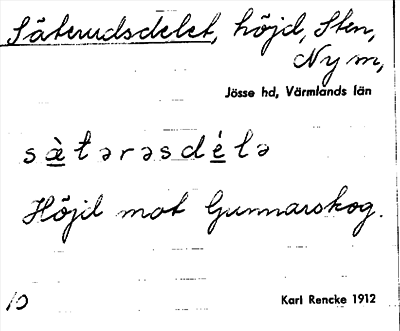 Säterudsdelet, höjd, Sten,
Ny m,
Jösse hd, Värmlands län
sὰtərəsdélə
Höjd mot Gunnarskog.
10
Karl Rencke 1912